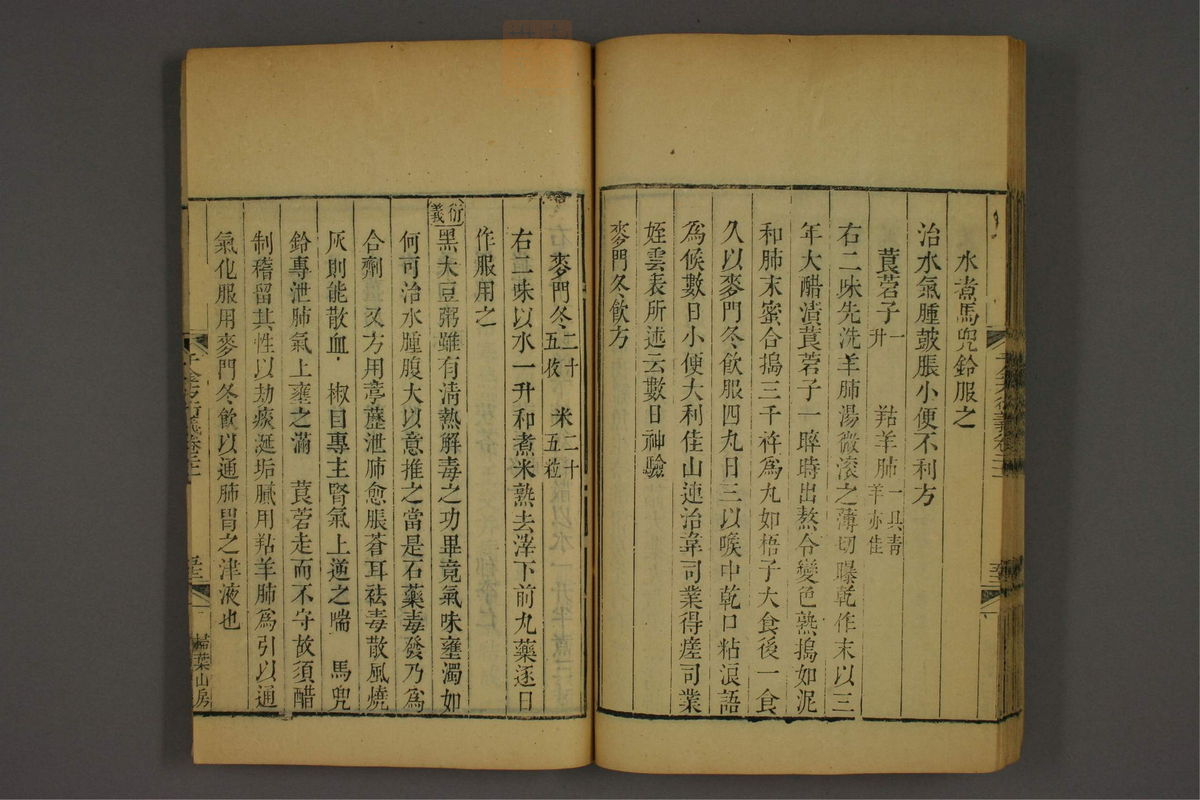 水煮馬兜鈴服之
治水氣腫皷脹小便不利方
莨菪子一升　羖羊肺一具青羊亦佳
右二味先洗羊肺湯微滚之薄切曝乾作末以三
年大醋漬莨菪子一晬時出熬令變色熟搗如泥
和肺末蜜合搗三千杵爲丸如梧子大食後一食
久以麥門冬飲服四丸日三以喉中乾口粘浪語
爲候數日小便大利佳山連治韋司業得瘥司業
姪雲表所述云數日神驗
麥門冬飲方
麥門冬二十五枚　米二十五粒
右二味以水一升和煮米熟去滓下前丸藥逐日
作服用之
衍義黑大豆粥雖有清熱解毒之功畢竟氣味壅濁如
何可治水腫腹大以意推之當是石藥毒發乃爲
合劑又方用葶藶泄肺愈脹蒼耳祛毒散風燒
灰則能散血　椒目專主腎氣上逆之喘　馬兜
鈴專泄肺氣上壅之滿　莨菪走而不守故須醋
制稽留其性以劫痰涎垢膩用羖羊肺爲引以通
氣化服用麥門冬飲以通肺胃之津液也
千金方衍義卷二十一
掃葉山房